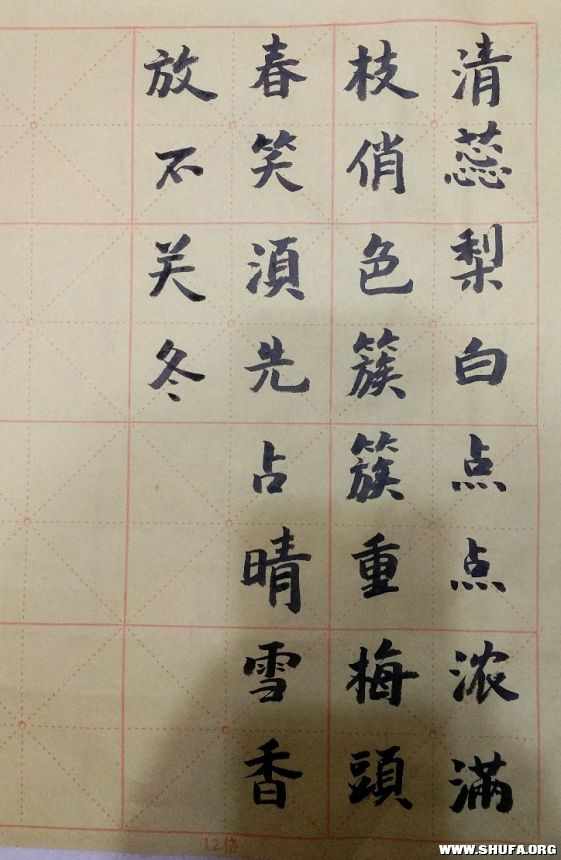 清蕊梨白点点浓滿
枝俏色簇簇重梅頭
春笑湏先占晴雪香
放不关冬
12格
WWW.SHUFA.ORG